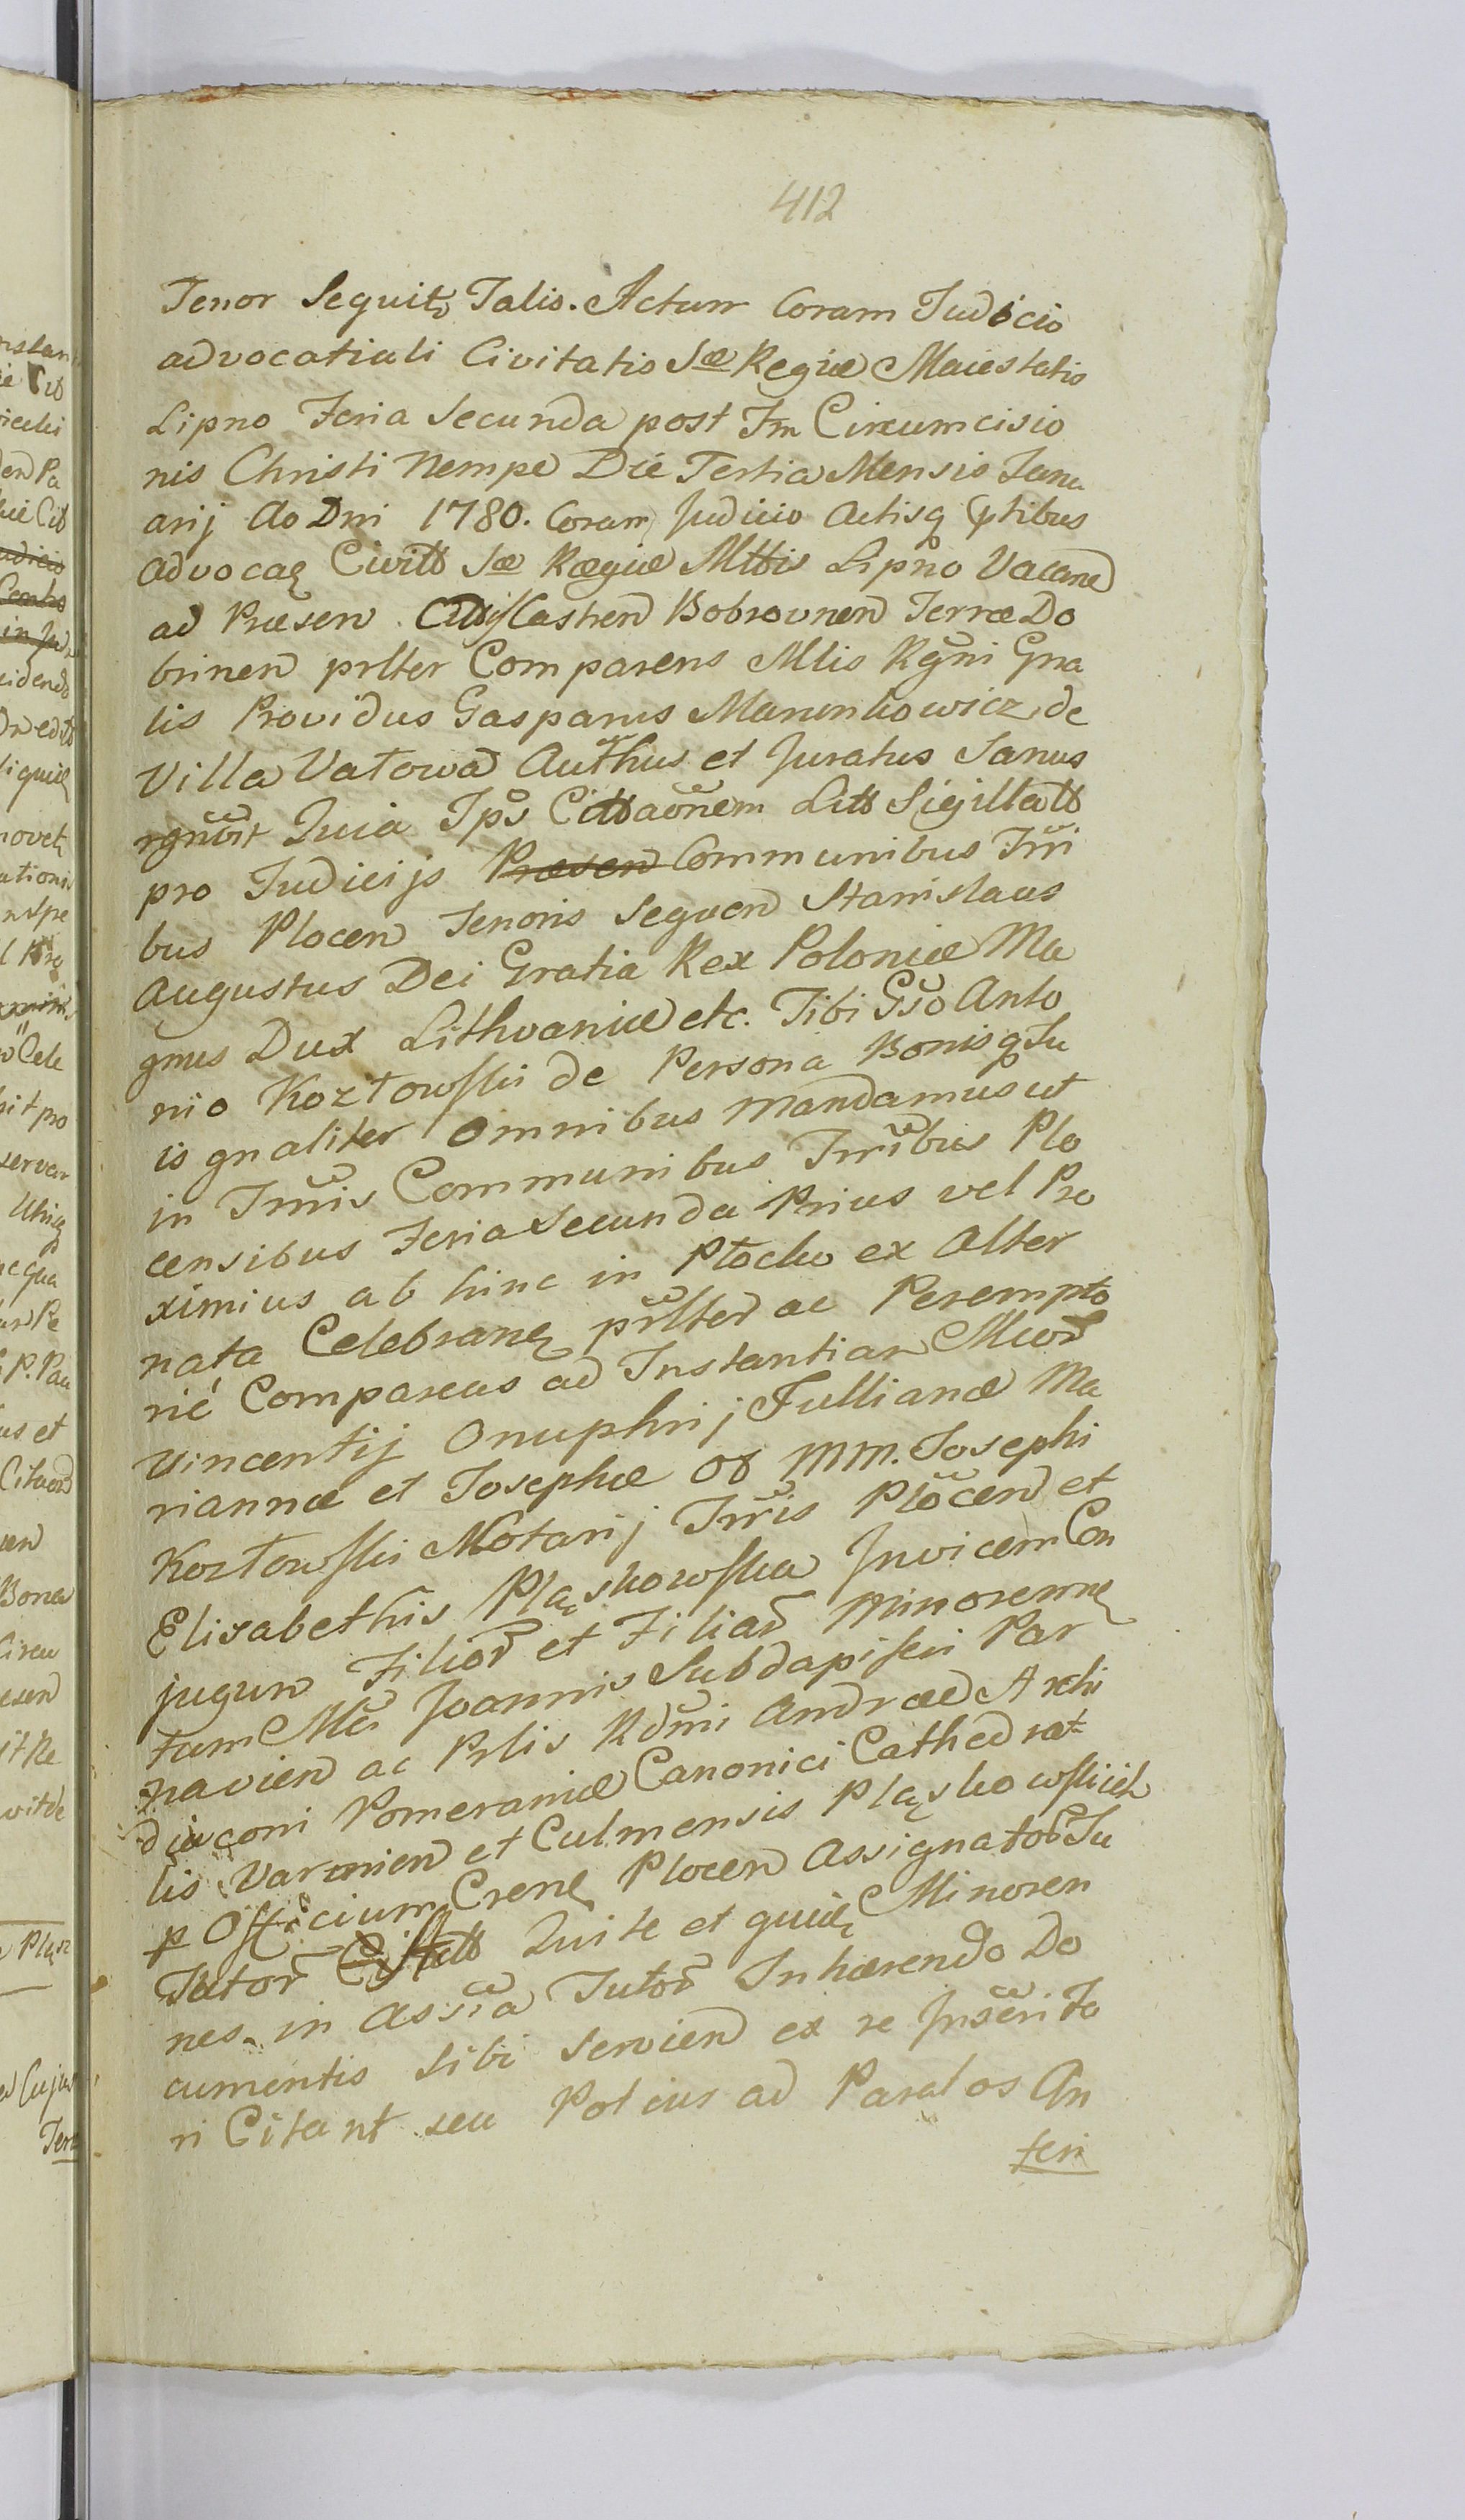 412
Tenor Sequitr Talis. Actum Coram Judicio
advocatiali Civitatis Sae Regiae Maiestatis
Lipno Feria Secunda post Fm Circumcisio
nis Christi Nempe Die Tertia Mensis Janu
arij Ao Dni 1780. Coram Judicio Actisq
Advocaq Civitt Sae Regiae Mttis Lipno Vacane
ad Praesen Castren Bobrovnen Terrae Do
brinen prlter Comparens Mlis Rgni Gna
lis Providus Gasparus Marunkowicz de
Villa Vatowa Authus et Juratus Sanus
rgnvit Quia Ips Cittaonem Litt Sigillatt
pro Judicijs Praesen Communibus Trri
bus Plocen Tenoris Sequen Stanislaus
Augustus Dei Gratia Rex Poloniae Ma
gnus Dux Lithvaniae etc. Tibi Gso Anto
nio Kozłowski de Persona Bonisq Tu
is gnaliter Omnibus Mandamus ut
in Trmis Communibus Trribus Plo
censibus Feria Secunda Prius vel Pro
ximius ab hinc in Płocko ex Alter
nata Celebranq prlter ac Perempto
rie Compareas ad Instantiam Mcor
Vincentij Onuphrij Jullianae Ma
riannae et Josephae Os MM. Josephi
Kozłowski Notarij Trris Plocen et
Elisabethis Pląskowska Invicem Con
jugum Filior et Filiar Minorennq
tum Mci Joannis Subdapiferi Par
navien ac Prlis Rdmi Andreae Archi
diaconi Pomeraniae Canonici Cathedrat
lis Varmien et Culmensis Pląskowskich
p Officium Crene Plocen Assignator Tu
Tutor Quite et quidq Minoren
nes in Assia Tutor Inhaerendo Do
cumentis Sibi Servien ex re Inserita
ri Citant seu Potius ad Paratos An
teri